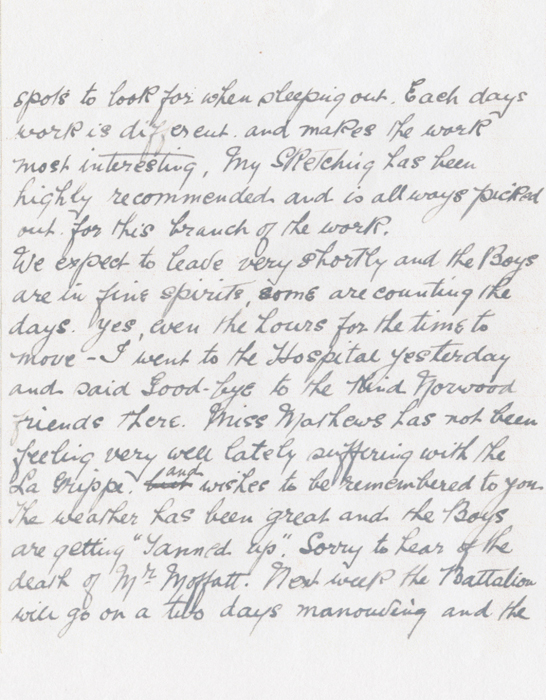 spots to look for when sleeping out. Each days
work is different. and makes the work
most interesting, My Sketching has been
highly recommended and is allways picked
out for this branch of the work.
We expect to leave very shortly and the Boys
are in fine spirits, some are counting the
days. Yes, even the hours for the time to
move - I went to the Hospital yesterday
and said Good-bye to the Kind Norwood
friends there. Miss Mathews has not been
feeling very well lately suffering with the
La Grippe. but and wishes to be remembered to you
The weather has been great and the Boys
are getting "Tanned up". Sorry to hear of the
death of Mr. Moffatt. Next week the Battalion
will go on a two days manouving and the